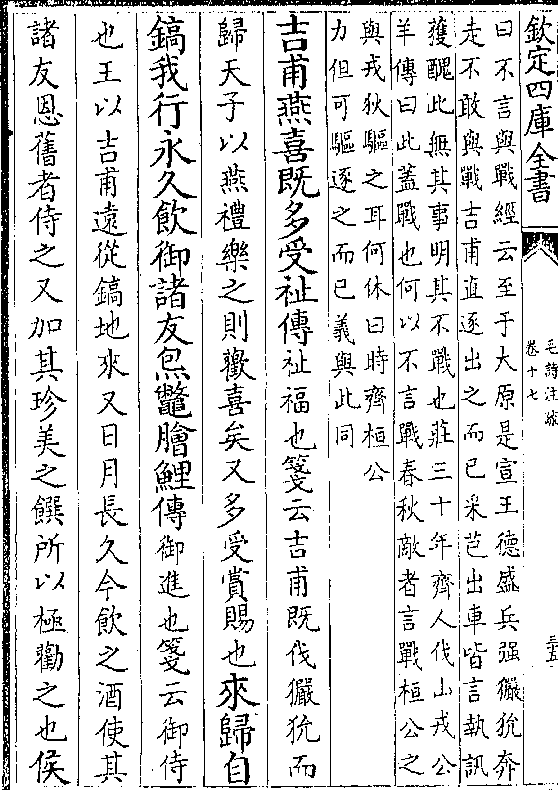 欽定四庫全書
毛詩注疏
卷十七
三五
曰不言與戰經云至于大原是宣王德盛兵强玁狁奔
走不敢與戰吉甫直逐出之而已采芑出車皆言執訊
獲醜此無其事明其不戰也莊三十年齊人伐山戎公
羊傳曰此蓋戰也何以不言戰春秋敵者言戰桓公之
與戎狄驅之耳何休曰時齊桓公
力但可驅逐之而已義與此同
吉甫燕喜既多受祉傳祉福也箋云吉甫既伐玁狁而
歸天子以燕禮樂之則歡喜矣又多受賞賜也來歸自
鎬我行永久飲御諸友炰鼈膾鯉傳御進也箋云御侍
也王以吉甫遠從鎬地來又日月長久今飲之酒使其
諸友恩舊者侍之又加其珍美之饌所以極勸之也侯